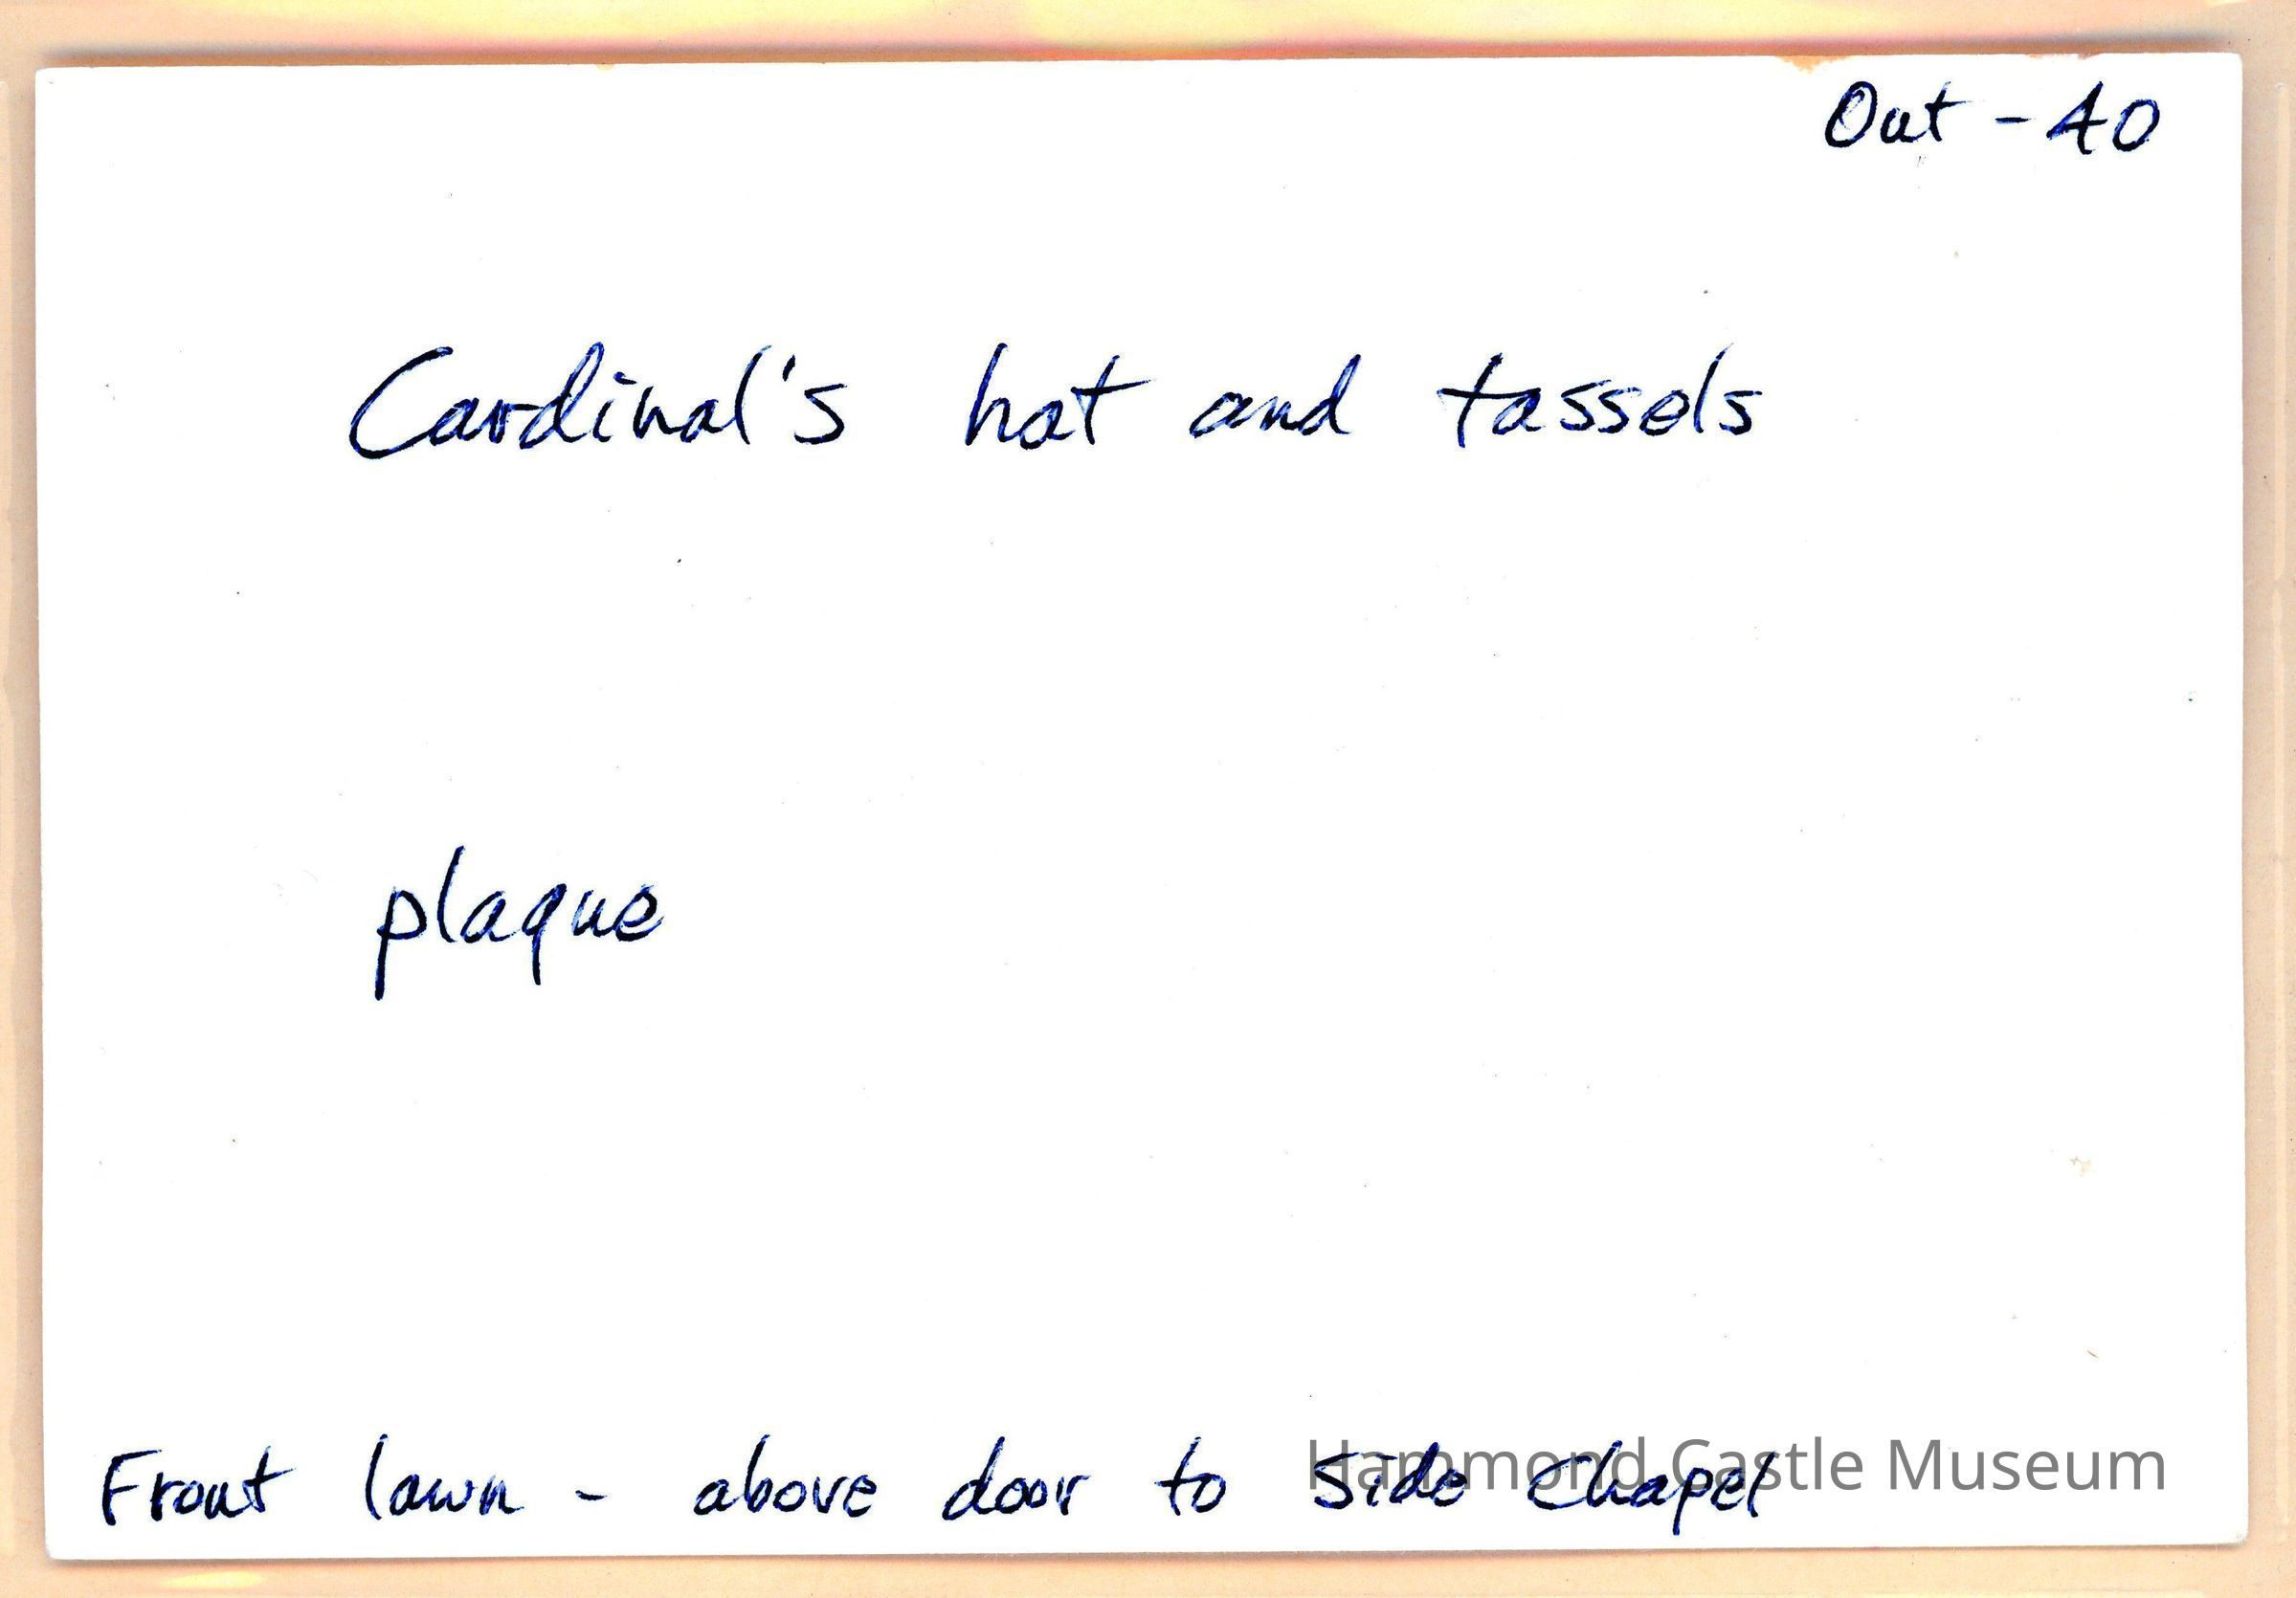 Out - 40
Cardinal's hat and tassels
plaque
Front lawn - above door to side chapel
Hammond Castle Museum